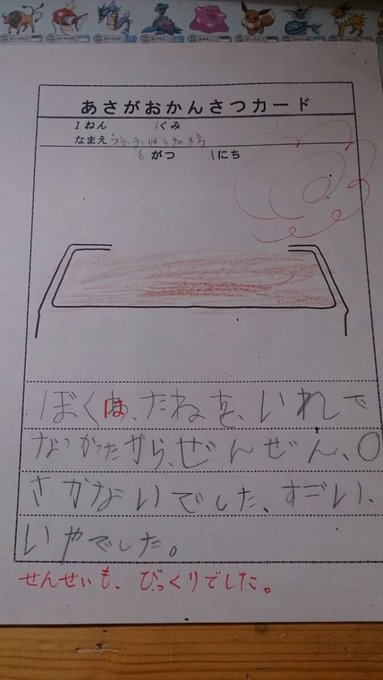 あさがおかんさつカード
1ねん 1くみ
なまえ
6がつ 1にち
ぼくは、たねを、いれて
なっかったから、ぜんぜん、
さかないでした、すごい、
いやでした。
せんせいも、びっくりでした。